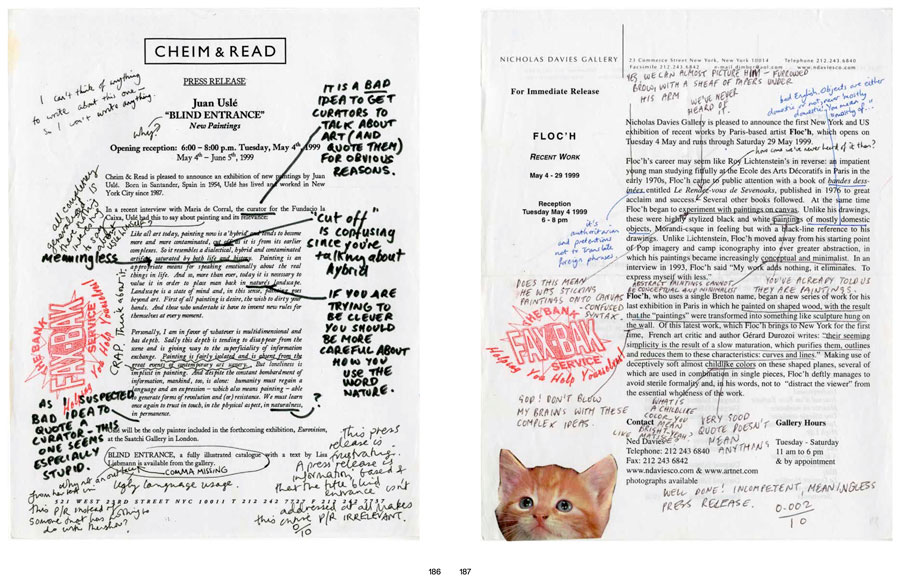 CHEIM & READ
PRESS RELEASE
Juan Uslé
"BLIND ENTRANCE"
New Paintings
Opening reception: 6:00 – 8:00 p.m. Tuesday, May 4th, 1999
May 4th – June 5th, 1999
Cheim & Read is pleased to announce an exhibition of new paintings by Juan
Uslé. Born in Santander, Spain in 1954, Uslé has lived and worked in New
York City since 1987.
In a recent interview with Maria de Corral, the curator for the Fundacio la
Caixa, Uslé had this to say about painting and its relevance:
Like all art today, painting now is a 'hybrid' and tends to become
more and more contaminated, cut off as it is from its earlier
complexes. So it resembles a dialectical, hybrid and contaminated
artifice saturated by both life and history. Painting is an
appropriate means for speaking emotionally about the real
things in life. And so, more than ever, today it is necessary to
value it in order to place man back in nature's landscape.
Landscape is a state of mind and, in this sense, painting goes
beyond art. First of all painting is desire, the wish to dirty your
hands. And those who undertake it have to invent new rules for
themselves at every moment.
Personally, I am in favor of whatever is multidimensional and
has depth. Sadly this depth is tending to disappear from the
scene and is giving way to the superficiality of information
exchange. Painting is fairly isolated and is absent from the
great events of contemporary art savory, but loneliness is
implicit in painting. And despite the constant bombardment of
information, mankind, too, is alone: humanity must regain a
language and an expression – which also means painting – able
to generate forms of revolution and (or) resistance. We must learn
once again to trust in touch, in the physical aspect, in naturalness,
in permanence.
Uslé will be the only painter included in the forthcoming exhibition, Eurovision,
at the Saatchi Gallery in London.
BLIND ENTRANCE, a fully illustrated catalogue with a text by Lisa
Liebmann is available from the gallery.
521 WEST 23RD STREET NYC 10011 T 212 242 7727 F 212 242 7737
I can't think of anything
to write about this one.
So I won't write anything.
why?
IT IS A BAD
IDEA TO GET
CURATORS TO
TALK ABOUT
ART (AND
QUOTE THEM)
FOR OBVIOUS
REASONS.
meaningless
"cut off"
is confusing
since you're
talking about
hybrid
CRAP. Think about it.
IF YOU ARE
TRYING TO
BE CLEVER
YOU SHOULD
BE MORE
CAREFUL ABOUT
HOW YOU
USE THE
WORD
NATURE.
THE BANK
FAX-BAK
SERVICE
Helping You Help Yourselves!
AS I SUSPECTED
BAD IDEA TO
QUOTE A
CURATOR – THIS
ONE SEEMS
ESPECIALLY
STUPID.
?
COMMA MISSING
Ugly language usage.
this press
release is
frustrating.
A press release is
information based &
that the title 'blind
entrance' isn't
addressed at all makes
this entire P/R IRRELEVANT.
0/10
NICHOLAS DAVIES GALLERY
23 Commerce Street New York, New York 10014 Telephone 212.243.6840
Facsimile 212.243.6842 www.ndaviesco.com
For Immediate Release
FLOC'H
RECENT WORK
May 4 - 29 1999
Reception
Tuesday May 4 1999
6 - 8 pm
YES, WE CAN ALMOST PICTURE HIM – FURROWED
BROW, WITH A SHEAF OF PAPERS UNDER
HIS ARM
WE'VE NEVER
HEARD OF
IT.
Nicholas Davies Gallery is pleased to announce the first New York and US
exhibition of recent works by Paris-based artist Floc'h, which opens on
Tuesday 4 May and runs through Saturday 29 May 1999.
how come we've never heard of it then?
Floc'h's career may seem like Roy Lichtenstein's in reverse: an impatient
young man studying fitfully at the Ecole des Arts Décoratifs in Paris in the
early 1970s, Floc'h came to public attention with a book of bandes dess-
inées entitled Le Rendez-vous de Sevenoaks, published in 1976 to great
acclaim and success. Several other books followed. At the same time
Floc'h began to experiment with paintings on canvas. Unlike his drawings,
these were highly stylized black and white paintings of mostly domestic
objects, Morandi-esque in feeling but with a black-line reference to his
drawings. Unlike Lichtenstein, Floc'h moved away from his starting point
of Pop imagery and camp iconography into ever greater abstraction, in
which his paintings became increasingly conceptual and minimalist. In an
interview in 1993, Floc'h said "My work adds nothing, it eliminates. To
express myself with less."
it's
authoritarian
and pretentious
not to translate
foreign phrases
DOES THIS MEAN
HE WAS STICKING
PAINTINGS ONTO CANVAS
– CONFUSED
SYNTAX.
ABSTRACT PAINTINGS CANNOT
BE CONCEPTUAL AND MINIMALIST
YOU'VE ALREADY TOLD US
THEY ARE PAINTINGS.
Floc'h, who uses a single Breton name, began a new series of work for his
last exhibition in Paris in which he painted on shaped wood, with the result
that the "paintings" were transformed into something like sculpture hung on
the wall. Of this latest work, which Floc'h brings to New York for the first
Time, French art critic and author Gérard Durozoi writes: "their seeming
simplicity is the result of a slow maturation, which purifies them, outlines
and reduces them to these characteristics: curves and lines." Making use of
deceptively soft almost childlike colors on these shaped planes, several of
which are used in combination in single pieces, Floc'h deftly manages to
avoid sterile formality and, in his words, not to "distract the viewer" from
the essential wholeness of the work.
THE BANK
FAX-BAK
SERVICE
Helping You Help Yourselves!
GOD! DON'T BLOW
MY BRAINS WITH THESE
COMPLEX IDEAS.
WHAT IS
A CHILDLIKE
COLOR, YOU
MEAN
BRIGHT – YEAH?
LIKE MATISSE?
VERY GOOD
QUOTE DOESN'T
MEAN
ANYTHING
Contact
Ned Davies
Telephone: 212 243 6840
Fax: 212 243 6842
www.ndaviesco.com & www.artnet.com
photographs available
Gallery Hours
Tuesday - Saturday
11 am to 6 pm
& by appointment
WELL DONE! INCOMPETENT, MEANINGLESS
PRESS RELEASE.
0.002/10
186 187